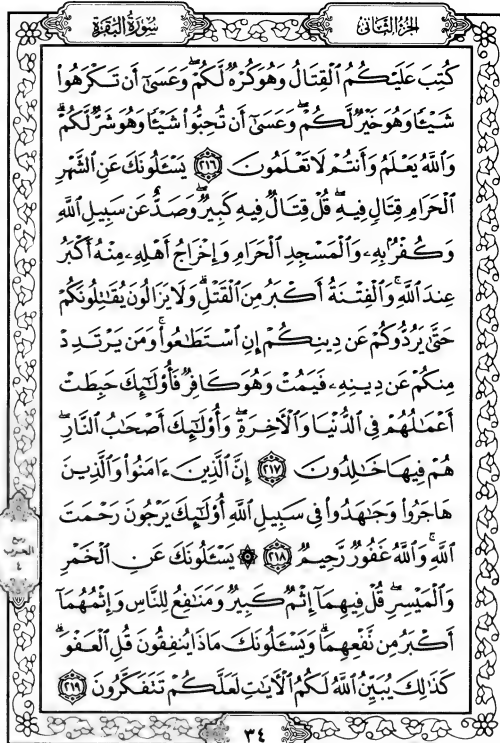 الجزء الثاني
سورة البقرة
كُتِبَ عَلَيْكُمُ ٱلْقِتَالُ وَهُوَ كُرْهٌ لَّكُمْ ۖ وَعَسَىٰٓ أَن تَكْرَهُوا۟
شَيْـًٔا وَهُوَ خَيْرٌ لَّكُمْ ۖ وَعَسَىٰٓ أَن تُحِبُّوا۟ شَيْـًٔا وَهُوَ شَرٌّ لَّكُمْ ۗ
وَٱللَّهُ يَعْلَمُ وَأَنتُمْ لَا تَعْلَمُونَ ٢١٦ يَسْـَٔلُونَكَ عَنِ ٱلشَّهْرِ
ٱلْحَرَامِ قِتَالٍ فِيهِ ۖ قُلْ قِتَالٌ فِيهِ كَبِيرٌ ۖ وَصَدٌّ عَن سَبِيلِ ٱللَّهِ
وَكُفْرٌۢ بِهِۦ وَٱلْمَسْجِدِ ٱلْحَرَامِ وَإِخْرَاجُ أَهْلِهِۦ مِنْهُ أَكْبَرُ
عِندَ ٱللَّهِ ۚ وَٱلْفِتْنَةُ أَكْبَرُ مِنَ ٱلْقَتْلِ ۗ وَلَا يَزَالُونَ يُقَـٰتِلُونَكُمْ
حَتَّىٰ يَرُدُّوكُمْ عَن دِينِكُمْ إِنِ ٱسْتَطَـٰعُوا۟ ۚ وَمَن يَرْتَدِدْ
مِنكُمْ عَن دِينِهِۦ فَيَمُتْ وَهُوَ كَافِرٌ فَأُو۟لَـٰٓئِكَ حَبِطَتْ
أَعْمَـٰلُهُمْ فِى ٱلدُّنْيَا وَٱلْـَٔاخِرَةِ ۖ وَأُو۟لَـٰٓئِكَ أَصْحَـٰبُ ٱلنَّارِ ۖ
هُمْ فِيهَا خَـٰلِدُونَ ٢١٧ إِنَّ ٱلَّذِينَ ءَامَنُوا۟ وَٱلَّذِينَ
هَاجَرُوا۟ وَجَـٰهَدُوا۟ فِى سَبِيلِ ٱللَّهِ أُو۟لَـٰٓئِكَ يَرْجُونَ رَحْمَتَ
ٱللَّهِ ۚ وَٱللَّهُ غَفُورٌ رَّحِيمٌ ٢١٨ ۞ يَسْـَٔلُونَكَ عَنِ ٱلْخَمْرِ
وَٱلْمَيْسِرِ ۖ قُلْ فِيهِمَآ إِثْمٌ كَبِيرٌ وَمَنَـٰفِعُ لِلنَّاسِ وَإِثْمُهُمَآ
أَكْبَرُ مِن نَّفْعِهِمَا ۗ وَيَسْـَٔلُونَكَ مَاذَا يُنفِقُونَ قُلِ ٱلْعَفْوَ ۗ
كَذَٰلِكَ يُبَيِّنُ ٱللَّهُ لَكُمُ ٱلْـَٔايَـٰتِ لَعَلَّكُمْ تَتَفَكَّرُونَ ٢١٩
ربع
الحزب
٤
٣٤